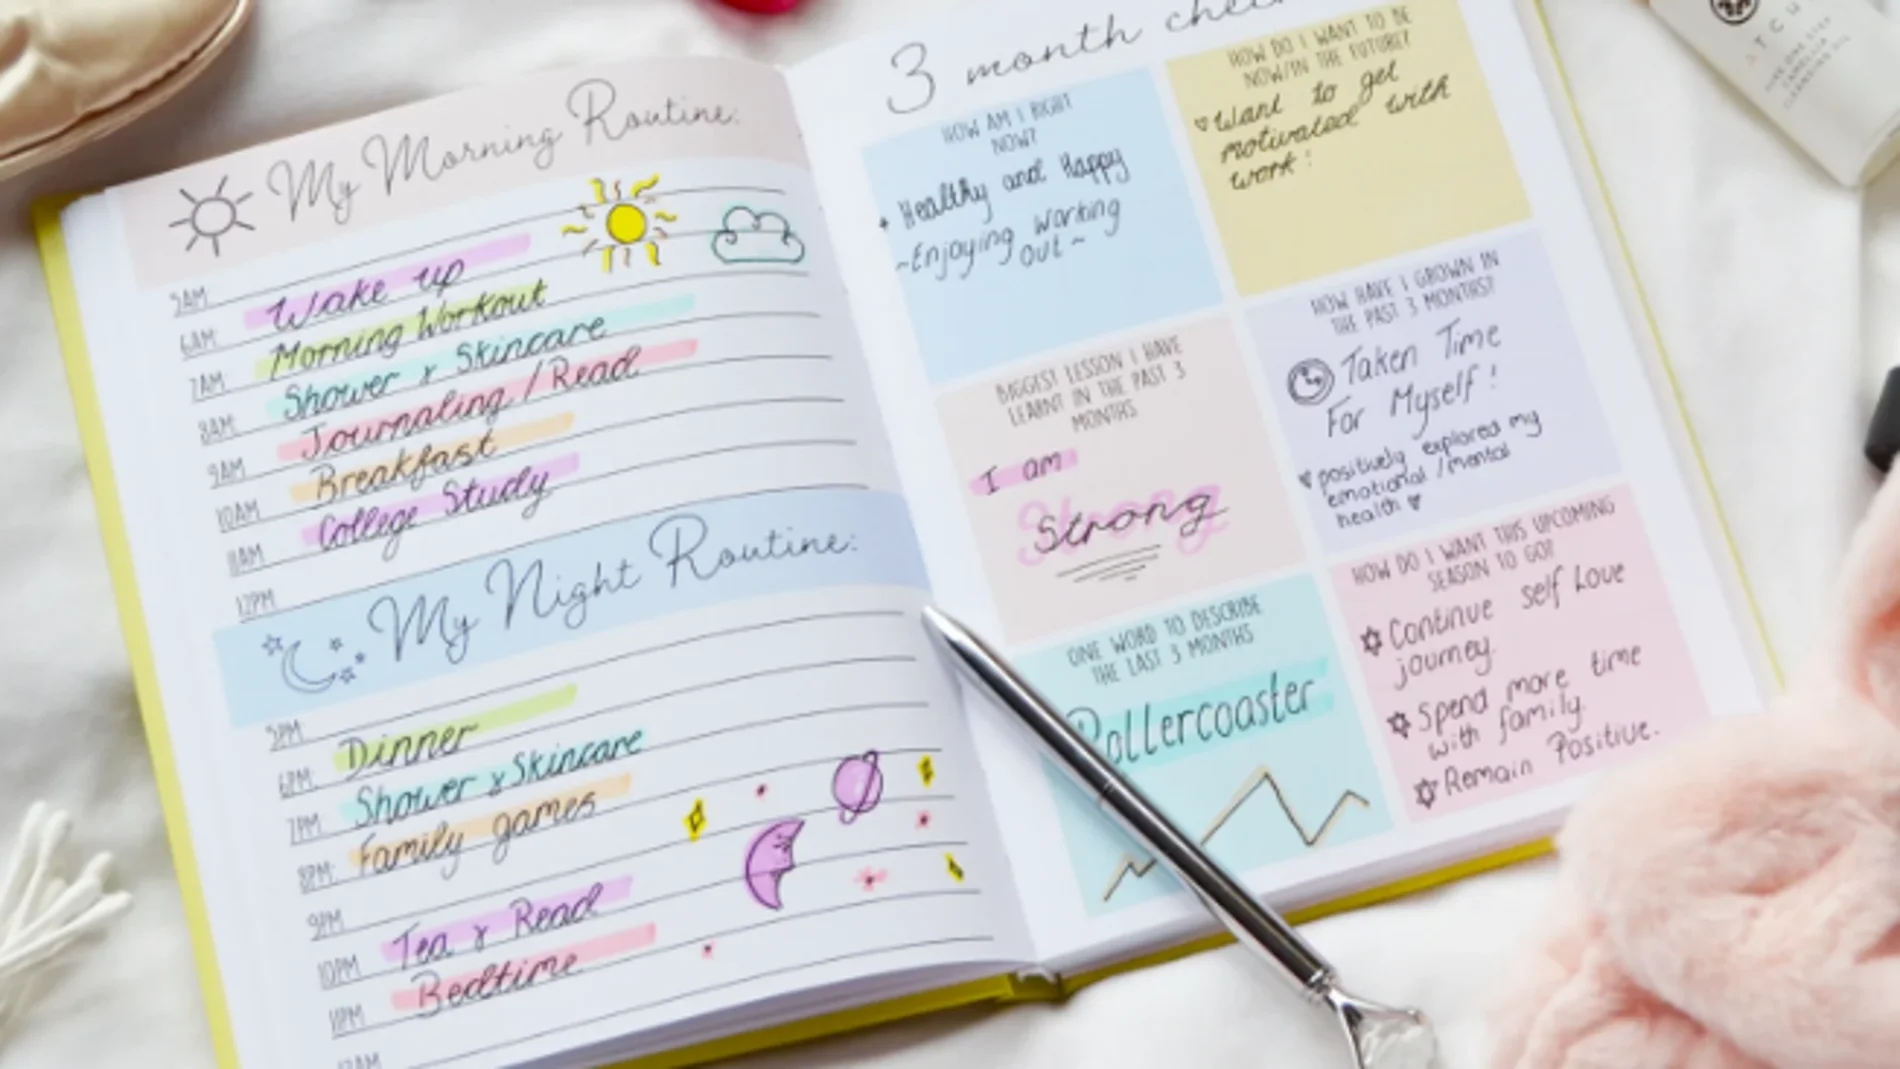 My Morning Routine:
5AM:
6AM: Wake up
7AM: Morning Workout
8AM: Shower & Skincare
9AM: Journaling / Read
10AM: Breakfast
11AM: College Study
12PM:
My Night Routine:
5PM:
6PM: Dinner
7PM: Shower & Skincare
8PM: Family games
9PM:
10PM: Tea & Read
11PM: Bedtime
12AM
3 month
HOW AM I RIGHT
NOW?
Healthy and Happy
~Enjoying working
out~
HOW DO I WANT TO BE
NOW/IN THE FUTURE?
Want to get
motivated with
work!
BIGGEST LESSON I HAVE
LEARNT IN THE PAST 3
MONTHS
I am
Strong
HOW HAVE I GROWN IN
THE PAST 3 MONTHS?
Taken Time
For Myself!
positively explored my
emotional /mental
health
ONE WORD TO DESCRIBE
THE LAST 3 MONTHS
Rollercoaster
HOW DO I WANT THIS UPCOMING
SEASON TO GO?
Continue self Love
journey.
Spend more time
with family.
Remain Positive.